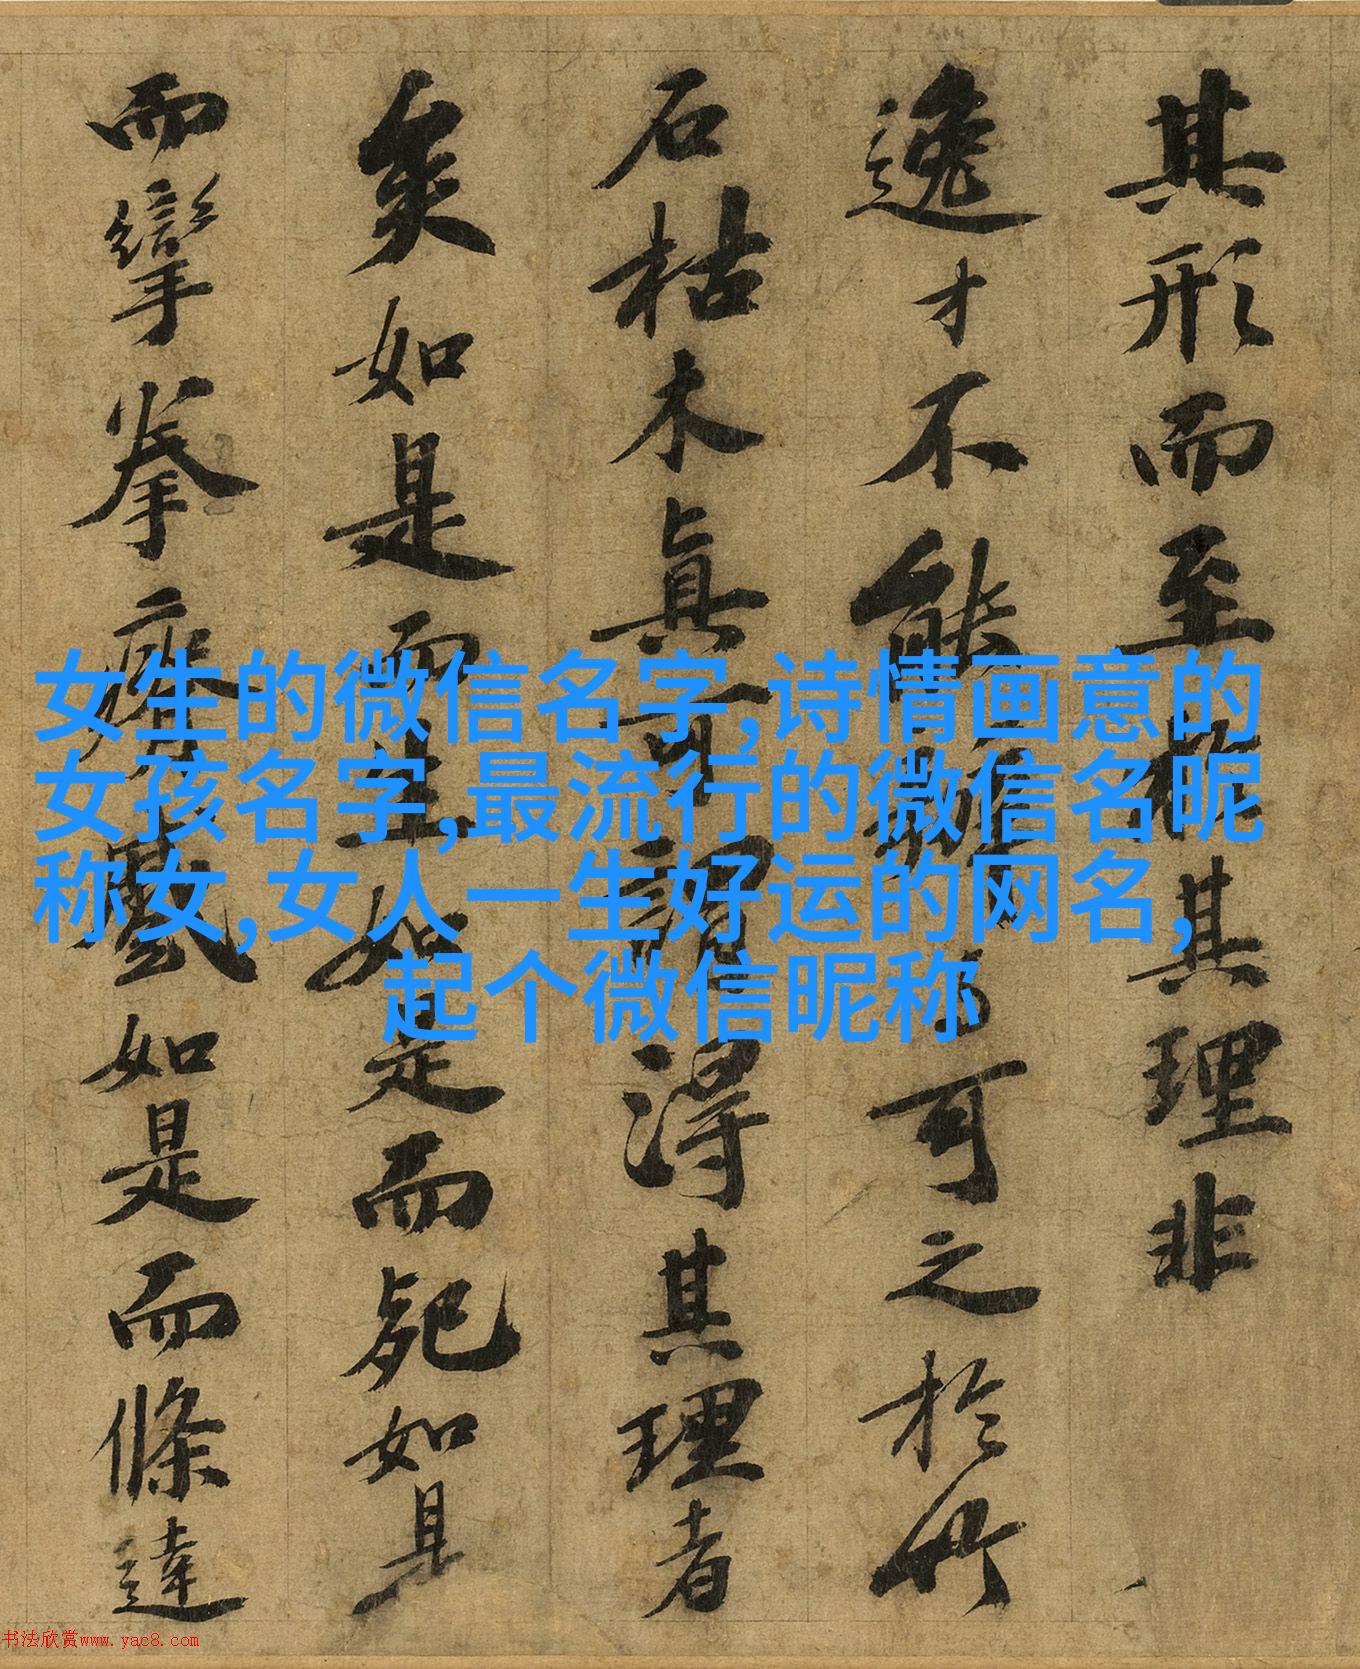 其形而至於其理非
逸才不能可之於竹
石枯木真可謂得其理者
矣如是而生如是而死如是
而攣拳瘠蹙如是而條達
女生的微信名字,诗情画意的
女孩名字,最流行的微信名昵
称女,女人一生好运的网名,
起个微信昵称
书法欣赏www.yac8.com